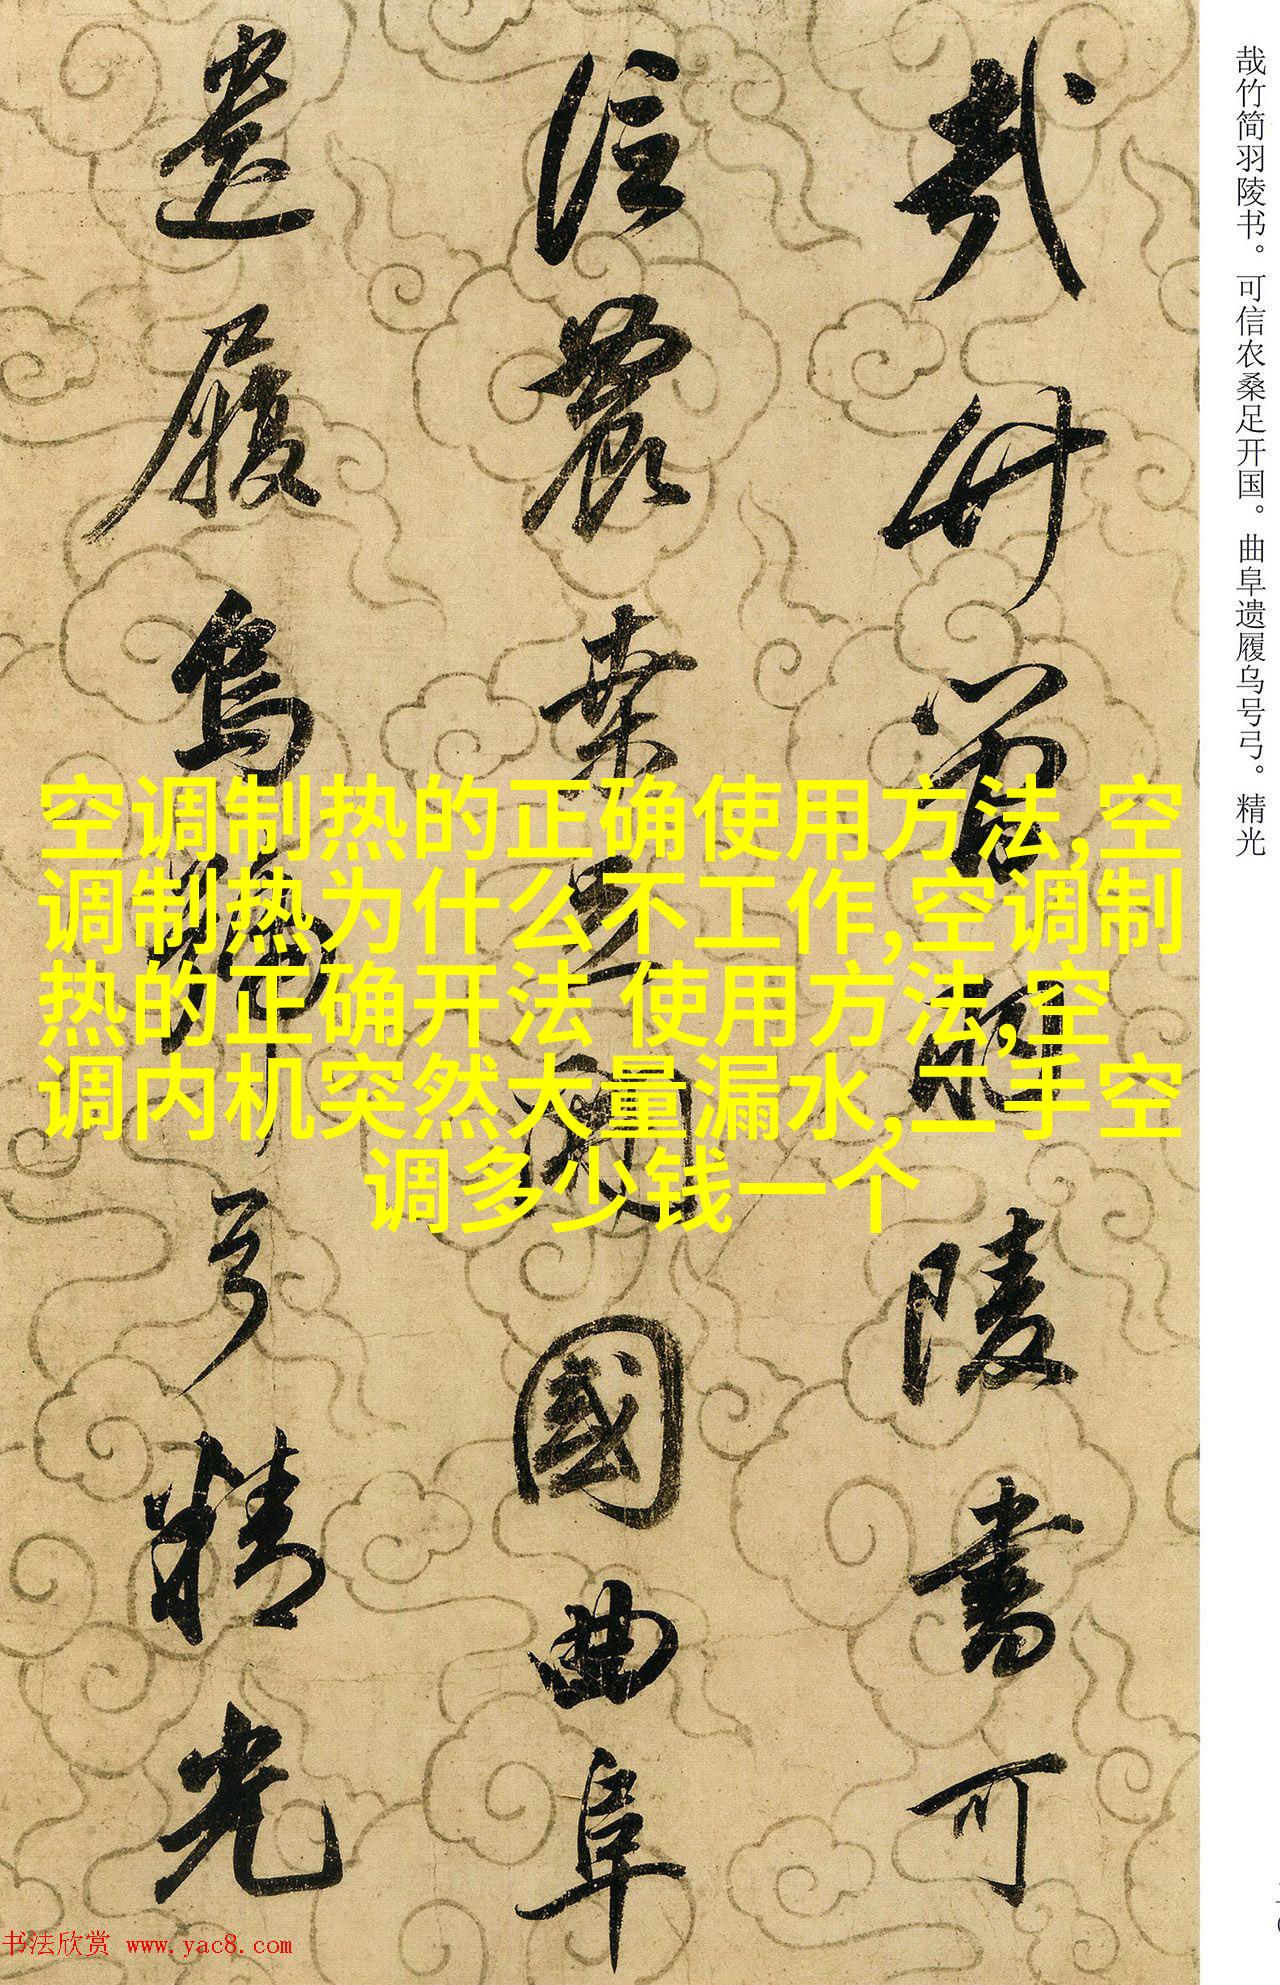 哉竹简羽陵书。可信农桑足开国。曲阜遗履乌号弓。精光
哉竹簡羽陵書可
信農桒足開國曲阜
遺履烏號弓精光
空调制热的正确使用方法,空
调制热为什么不工作,空调制
热的正确开法 使用方法,空
调内机突然大量漏水,二手空
调多少钱一个
书法欣赏 www.yac8.com